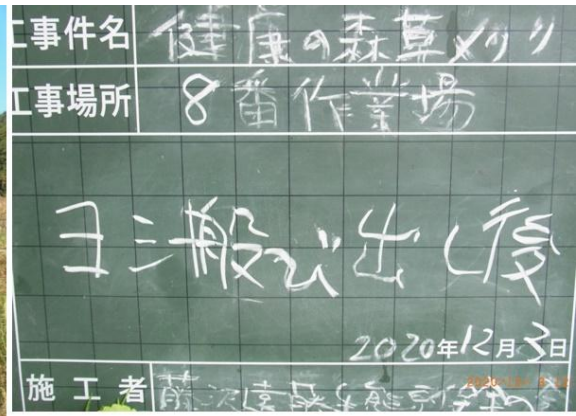 工事件名 健康の森草メリリ
工事場所 8番作業場
ヨシ般び出し後
2020年12月3日
施工者